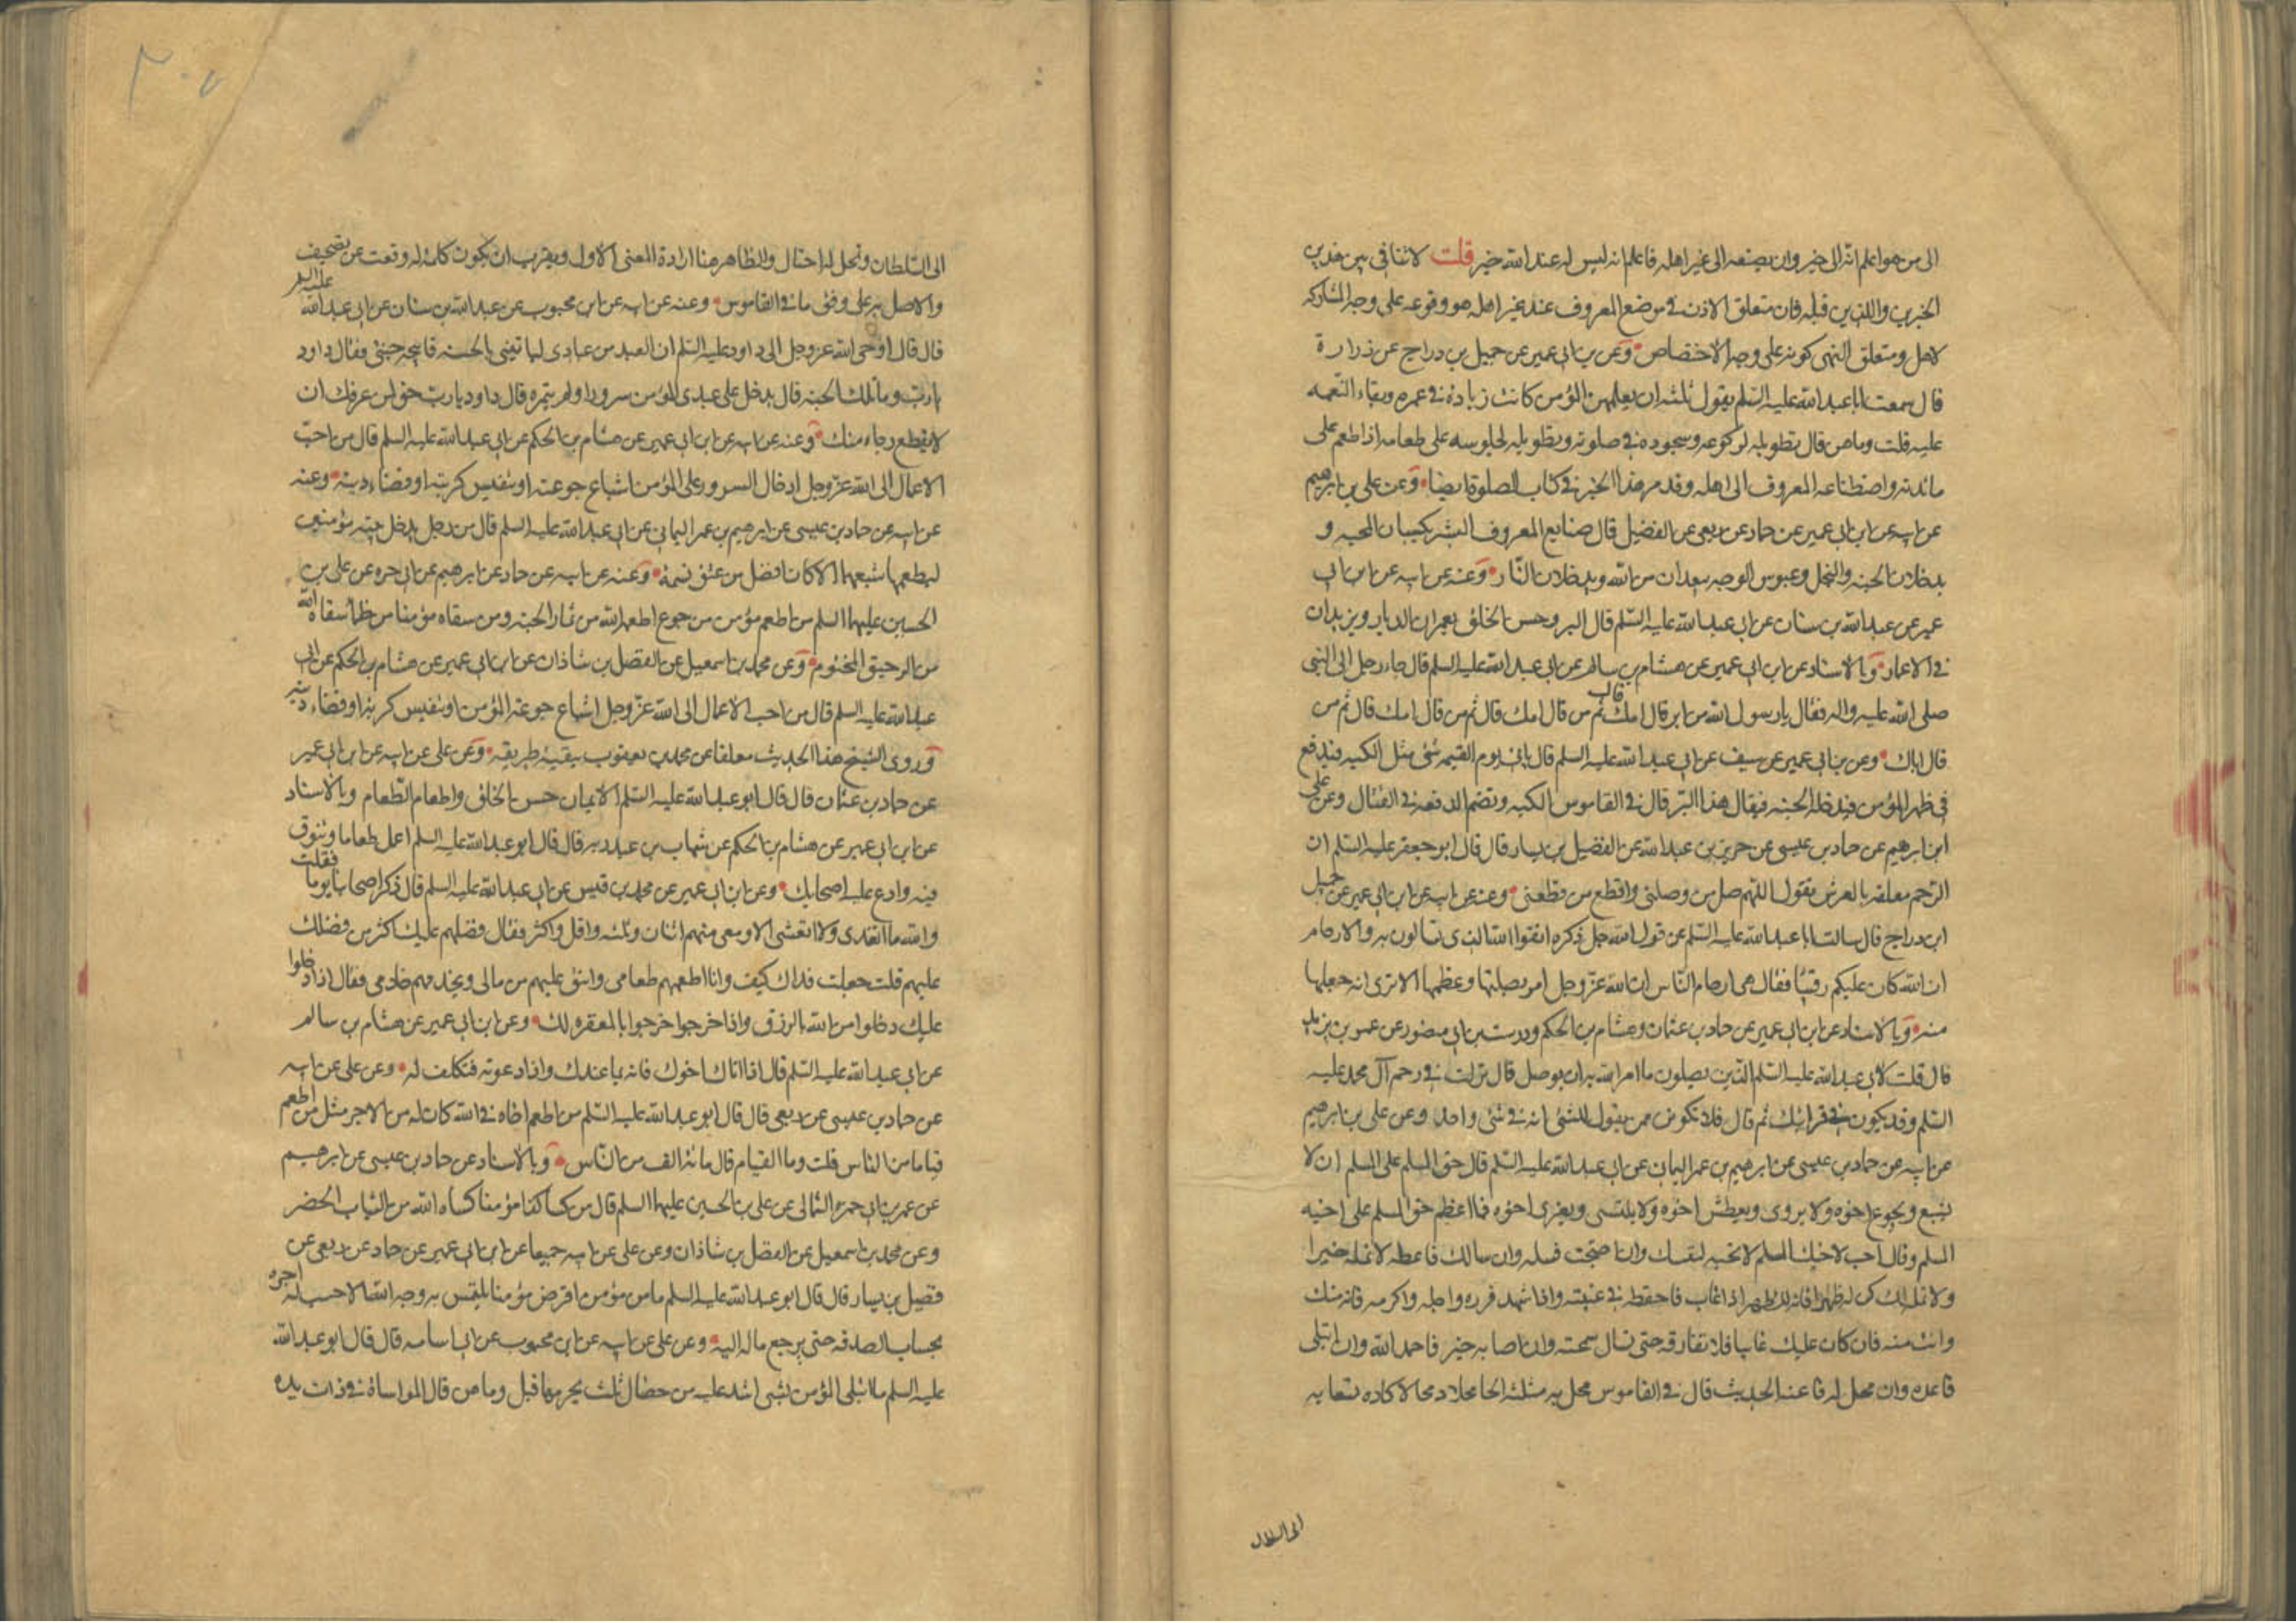 الى من هو اعلم انه الى خير وان يصنعه الى غير اهله فاعلم انه ليس له عند الله خير قلت لا تنافي بين هذين
الخبرين واللذين قبله فان متعلق الاذن في موضع المعروف عند غير اهله هو وقوعه على وجه المشاركه
لاهل ومتعلق النهى كونه على وجه الاختصاص وعن بن ابى عمير عن جميل بن دراج عن زرارة
قال سمعت ابا عبد الله عليه السلم يقول ثلثه ان يعلمهن المؤمن كانت زيادة في عمره وبقاء النعمه
عليه قلت وما هن قال تطويله لركوعه وسجوده في صلوته وتطويله لجلوسه على طعامه اذا طعم على
مائدته واصطناعه المعروف الى اهله وقد مر هذا الخبر في كتاب الصلوة ايضا وعن على بن ابرهيم
عن ابيه عن ابن ابى عمير عن حماد عن ربعى عن الفضيل قال صنايع المعروف البشر يكسبان المحبه و
يدخلان الجنه والبخل وعبوس الوجه يبعدان من الله ويدخلان النار وعنه عن ابيه عن ابن ابى
عمير عن عبد الله بن سنان عن ابى عبد الله عليه السلم قال البر وحسن الخلق يعمران الديار ويزيدان
في الاعمار وبالاسناد عن ابن ابى عمير عن هشام بن سالم عن ابى عبد الله عليه السلم قال جاء رجل الى النبى
صلى الله عليه واله فقال يا رسول الله من ابر قال امك قال ثم من قال امك قال ثم من قال امك قال ثم من
قال اباك وعن بن ابى عمير عن سيف عن ابى عبد الله عليه السلم قال ياتى يوم القيمه شئ مثل الكبه فيدفع
في ظهر المؤمن فيدخله الجنه فيقال هذا البر قال في القاموس الكبه وتضم الدفعه في القتال وعن على
ابن ابرهيم عن حماد بن عيسى عن حريز بن عبد الله عن الفضيل بن يسار قال قال ابو جعفر عليه السلم ان
الرحم معلقه بالعرش تقول اللهم صل من وصلنى واقطع من قطعنى وعنه عن ابيه عن ابن ابى عمير عن جميل
ابن دراج قال سالت ابا عبد الله عليه السلم عن قول الله جل ذكره اتقوا الله الذى تسالون به والارحام
ان الله كان عليكم رقيبا فقال هى ارحام الناس ان الله عز وجل امر بصلتها وعظمها الا ترى انه جعلها
منه وبالاسناد عن ابن ابى عمير عن حماد بن عثمان وهشام بن الحكم ودرست بن ابى منصور عن عمر بن يزيد
قال قلت لابى عبد الله عليه السلم الذين يصلون ما امر الله به ان يوصل قال نزلت في رحم آل محمد عليه
السلم وقد يكون في قرابتك ثم قال فلا تكونن ممن يقول للشئ انه في شئ واحد وعن على بن ابرهيم
عن ابيه عن حماد بن عيسى عن ابرهيم بن عمر اليمان عن ابى عبد الله عليه السلم قال حق المسلم على المسلم ان لا
يشبع ويجوع اخوه ولا يروى ويعطش اخوه ولا يلتسى ويعرى اخوه فما اعظم حق المسلم على اخيه
المسلم وقال احب لاخيك المسلم لا تحبه لنفسك وان احتجت فسله وان سالك فاعطه لا تمله خيرا
ولا تمله لك كن له ظهرا فانه لك ظهر اذا غاب فاحفظه في غيبته واذا شهد فزره واجله واكرمه فانه منك
وانت منه فان كان عليك عاتبا فلا تفارقه حتى تسال سمحته وان اصابه خير فاحمد الله وان ابتلى
فاعده وان محل له فاعنه الحديث قال في القاموس محل به مثلثه الحا محلا ومحالا كاده بسعايه
الى السلطان
الى السلطان ومحل له احتال والظاهر هنا ارادة المعنى الاول ويقرب ان يكون كلمة له وقعت عن تصحيف
والاصل به على وفق ما في القاموس وعنه عن ابيه عن ابن محبوب عن عبد الله بن سنان عن ابى عبد الله عليه السلم
قال قال اوحى الله عز وجل الى داود عليه السلم ان العبد من عبادى لياتينى بالحسنه فابيحه جنتى فقال داود
يا رب وما تلك الحسنه قال يدخل على عبدى المؤمن سرورا ولو بتمره قال داود يا رب حق لمن عرفك ان
لا يقطع رجاءه منك وعنه عن ابيه عن ابن ابى عمير عن هشام بن الحكم عن ابى عبد الله عليه السلم قال من احب
الاعمال الى الله عز وجل ادخال السرور على المؤمن اشباع جوعته او تنفيس كربته او قضاء دينه وعنه
عن ابيه عن حماد بن عيسى عن ابرهيم بن عمر اليمانى عن ابى عبد الله عليه السلم قال من رجل يدخل بيته مؤمنين
ليطعمها شبعهما الا كان افضل من عتق نسمة وعنه عن ابيه عن حماد عن ابرهيم عن ابى حمزه عن على بن
الحسين عليهما السلم من اطعم مؤمن من جوع اطعمه الله من ثمار الجنه ومن سقاه مؤمنا من ظمأ سقاه الله
من الرحيق المختوم وعن محمد بن اسمعيل عن الفضل بن شاذان عن ابن ابى عمير عن هشام بن الحكم عن ابى
عبد الله عليه السلم قال من احب الاعمال الى الله عز وجل اشباع جوعه المؤمن او تنفيس كربته او قضاء دينه
وروى الشيخ هذا الحديث معلقا عن محمد بن يعقوب ببقية طريقه وعن على عن ابيه عن ابن ابى عمير
عن حماد بن عثمان قال قال ابو عبد الله عليه السلم الايمان حسن الخلق واطعام الطعام وبالاسناد
عن ابن ابى عمير عن هشام بن الحكم عن شهاب بن عبد ربه قال قال ابو عبد الله عليه السلم اعمل طعاما وتنوق
فيه وادع عليه اصحابك وعن ابن ابى عمير عن محمد بن قيس عن ابى عبد الله عليه السلم قال ذكر اصحابنا يوما فقلت
والله ما اتغدى ولا اتعشى الا ومعى منهم اثنان وثلثه واقل واكثر فقال فضلهم عليك اكثر من فضلك
عليهم قلت جعلت فداك كيف وانا اطعمهم طعامى وانفق عليهم من مالى ويخدمهم خادمى فقال اذا دخلوا
عليك دخلوا من الله بالرزق واذا خرجوا خرجوا بالمغفره لك وعن ابن ابى عمير عن هشام بن سالم
عن ابى عبد الله عليه السلم قال اذا اتاك اخوك فاته بما عندك واذا دعوته فتكلف له وعن على عن ابيه
عن حماد بن عيسى عن ربعى قال قال ابو عبد الله عليه السلم من اطعم اخاه في الله كان له من الاجر مثل من اطعم
فياما من الناس قلت وما الفيام قال مائة الف من الناس وبالاسناد عن حماد بن عيسى عن ابرهيم
عن عمر بن ابى حمزه الثمالى عن على بن الحسين عليهما السلم قال من كسا مؤمنا كساه الله من الثياب الخضر
وعن محمد بن اسمعيل عن الفضل بن شاذان وعن على عن ابيه جميعا عن ابن ابى عمير عن حماد عن ربعى عن
فضيل بن يسار قال قال ابو عبد الله عليه السلم ما من مؤمن اقرض مؤمنا يلتمس به وجه الله الا حسب له اجره
بحساب الصدقه حتى يرجع ماله اليه وعن على عن ابيه عن ابن محبوب عن ابى اسامه قال قال ابو عبد الله
عليه السلم ما ابتلى المؤمن بشئ اشد عليه من خصال ثلث يحرمها قيل وما هن قال المواساة في ذات يده